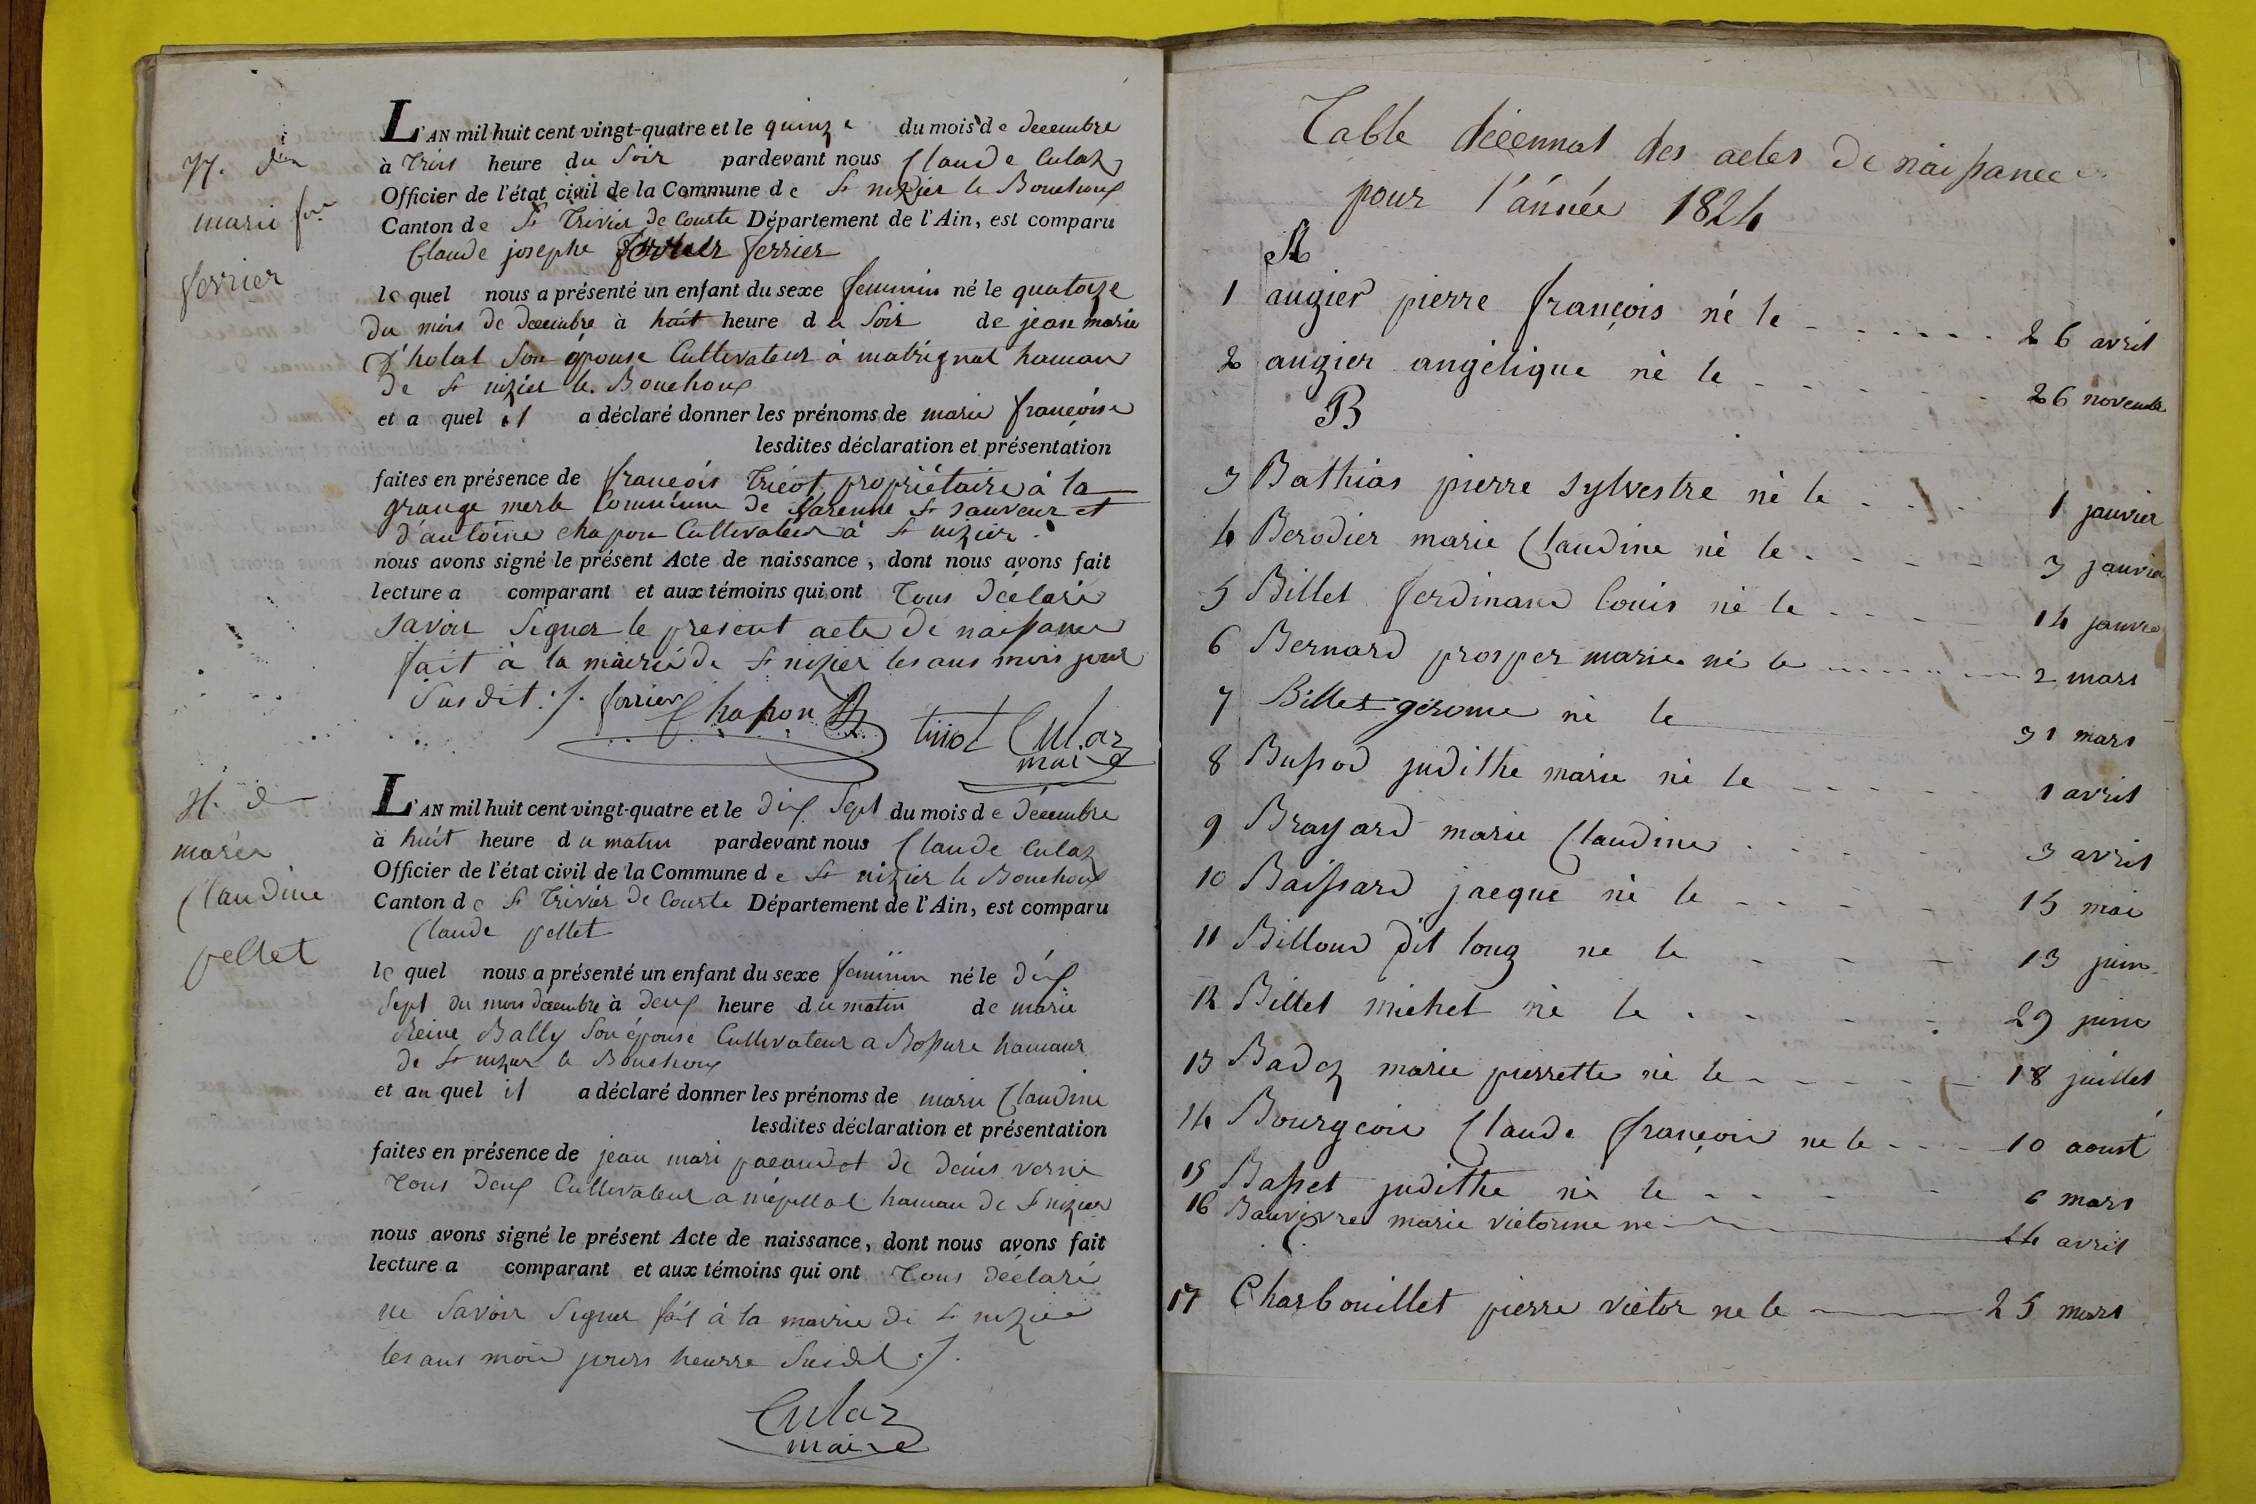 marie fse
ferrier
L'AN mil huit cent vingt-quatre et le quinze du mois de decembre
à trois heure du Soir pardevant nous Claude Culaz
Officier de l'état civil de la Commune de St nizier le Bouchoux
Canton de St Trivier de Courte Département de l'Ain, est comparu
Claude josephe ferrier
le quel nous a présenté un enfant du sexe feminin né le quatorze
du mois de decembre à huit heure du Soir de jean marie
d'holat Son épouse Cultivateur à matrignat hamau
de St nizier le Bouchoux
et a quel il a déclaré donner les prénoms de marie françoise
lesdites déclaration et présentation
faites en présence de françois tricot propriétaire à la
grange merle Commune de Varenne St Sauveur et
d'antoine chapon Cultivateur à St nizier.
nous avons signé le présent Acte de naissance, dont nous avons fait
lecture a comparant et aux témoins qui ont Tous déclaré
Savoir Signer le present acte de naissance
fait à la mairie de St nizier les ans mois jour
Susdit ./. ferrier Chapon tricot Culaz
maire
marie
Claudine
pellet
L'AN mil huit cent vingt-quatre et le dix Sept du mois de décembre
à huit heure du matin pardevant nous Claude Culaz
Officier de l'état civil de la Commune de St nizier le Bouchoux
Canton de St Trivier de Courte Département de l'Ain, est comparu
Claude pellet
le quel nous a présenté un enfant du sexe feminin né le dix
Sept du mois decembre à deux heure du matin de marie
Reine Bally Son épouse Cultivateur a Bossure hamaux
de St nizier le Bouchoux
et au quel il a déclaré donner les prénoms de marie Claudine
lesdites déclaration et présentation
faites en présence de jean mari pacaudot de denis verne
Tous deux Cultivateur a hamau de St nizier
nous avons signé le présent Acte de naissance, dont nous avons fait
lecture a comparant et aux témoins qui ont Tous déclaré
ne Savoir Signer fait à la mairie de St nizier
les ans mois jours heurre Susdit ./.
Culaz
maire
Table décennal des actes de naissance
pour l'année 1824
A
1 augier pierre françois né le 26 avril
2 augier angélique né le 26 novembre
B
3 Bathias pierre Sylvestre né le 1 janvier
4 Berodier marie Claudine né le 3 janvier
5 Billet ferdinand louis né le 14 janvier
6 Bernard prosper marie né le 2 mars
7 Billet gérome né le 31 mars
8 Bussod judithe marie né le 1 avril
9 Brayard marie Claudine 3 avril
10 Baissard jacque né le 15 mai
11 Billoud dit long ne le 13 juin
12 Billet michel né le 29 juin
13 Badez marie pierrette né le 18 juillet
14 Bourgeois Claude françois ne le 10 aoust
15 Basset judithe né le 6 mars
16 marie victorine ne 24 avril
C
17 Charbouillet pierre victor ne le 25 mars